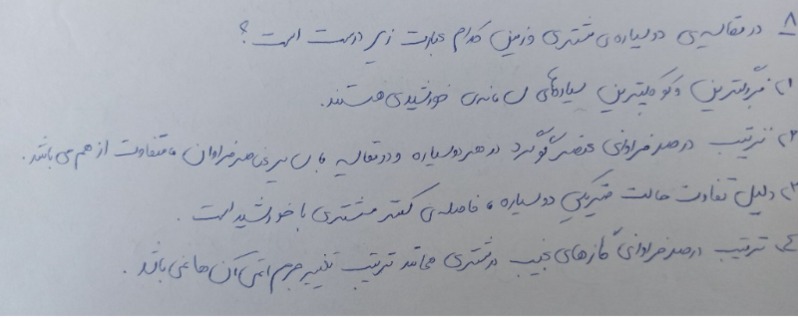 ۸ در مقایسه‌ی دو سیاره‌ی مشتری و زمین کدام عبارت زیر درست است؟
۱) بزرگترین و کوچکترین سیاره‌های سامانه‌ی خورشیدی هستند.
۲) ترتیب درصد فراوانی عنصر گوگرد در هر دو سیاره و در مقایسه با سایر عناصر فراوان متفاوت از هم می باشد.
۳) دلیل تفاوت حالت فیزیکی دو سیاره، فاصله‌ی کمتر مشتری با خورشید است.
۴) ترتیب درصد فراوانی گازهای نجیب در مشتری همانند ترتیب تغییر جرم اتمی آن ها می باشد.